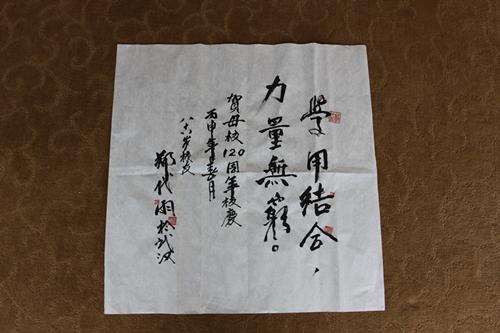 學用結合，
力量無窮。
賀母校120周年校慶
丙申年春月
八十六岁校友
鄭代雨於武汉